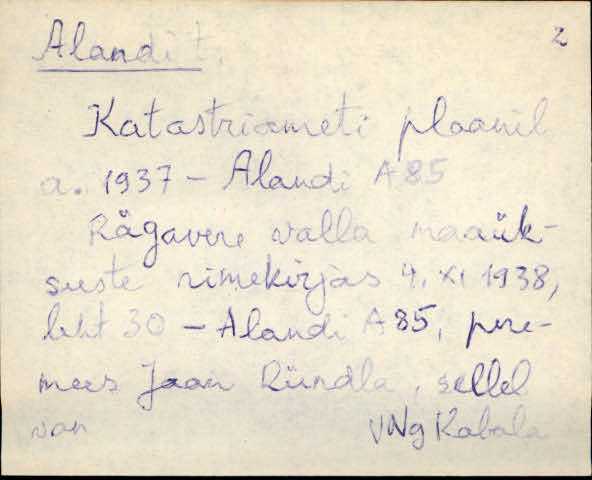 Alandi t.
2
Katastriameti plaanil
a. 1937 - Alandi A85
Rägavere valla maaük-
suste nimekirjas 4. XI 1938,
leht 30 - Alandi A85, pere-
mees Jaan Ründla, sellel
van
VNg Kabala